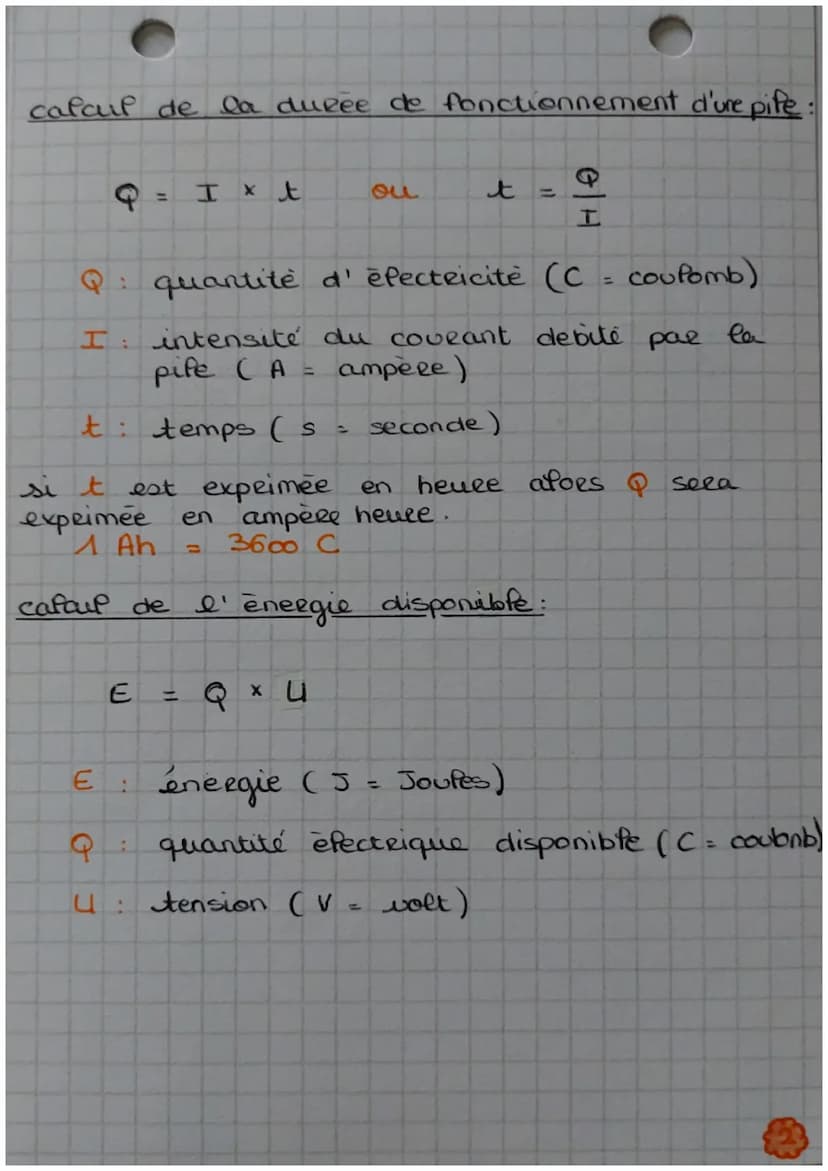 calcul de la durée de fonctionnement d'une pile :
Q = I × t ou t = Q/I
Q : quantité d'électricité (C = coulomb)
I : intensité du courant debité par la
pile ( A = ampère )
t : temps ( s = seconde )
si t est exprimée en heure alors Q sera
exprimée en ampère heure.
1 Ah = 3600 C
calcul de l'énergie disponible :
E = Q × U
E : énergie ( J = Joules )
Q : quantité électrique disponible ( C = coulomb)
U : tension ( V = volt )